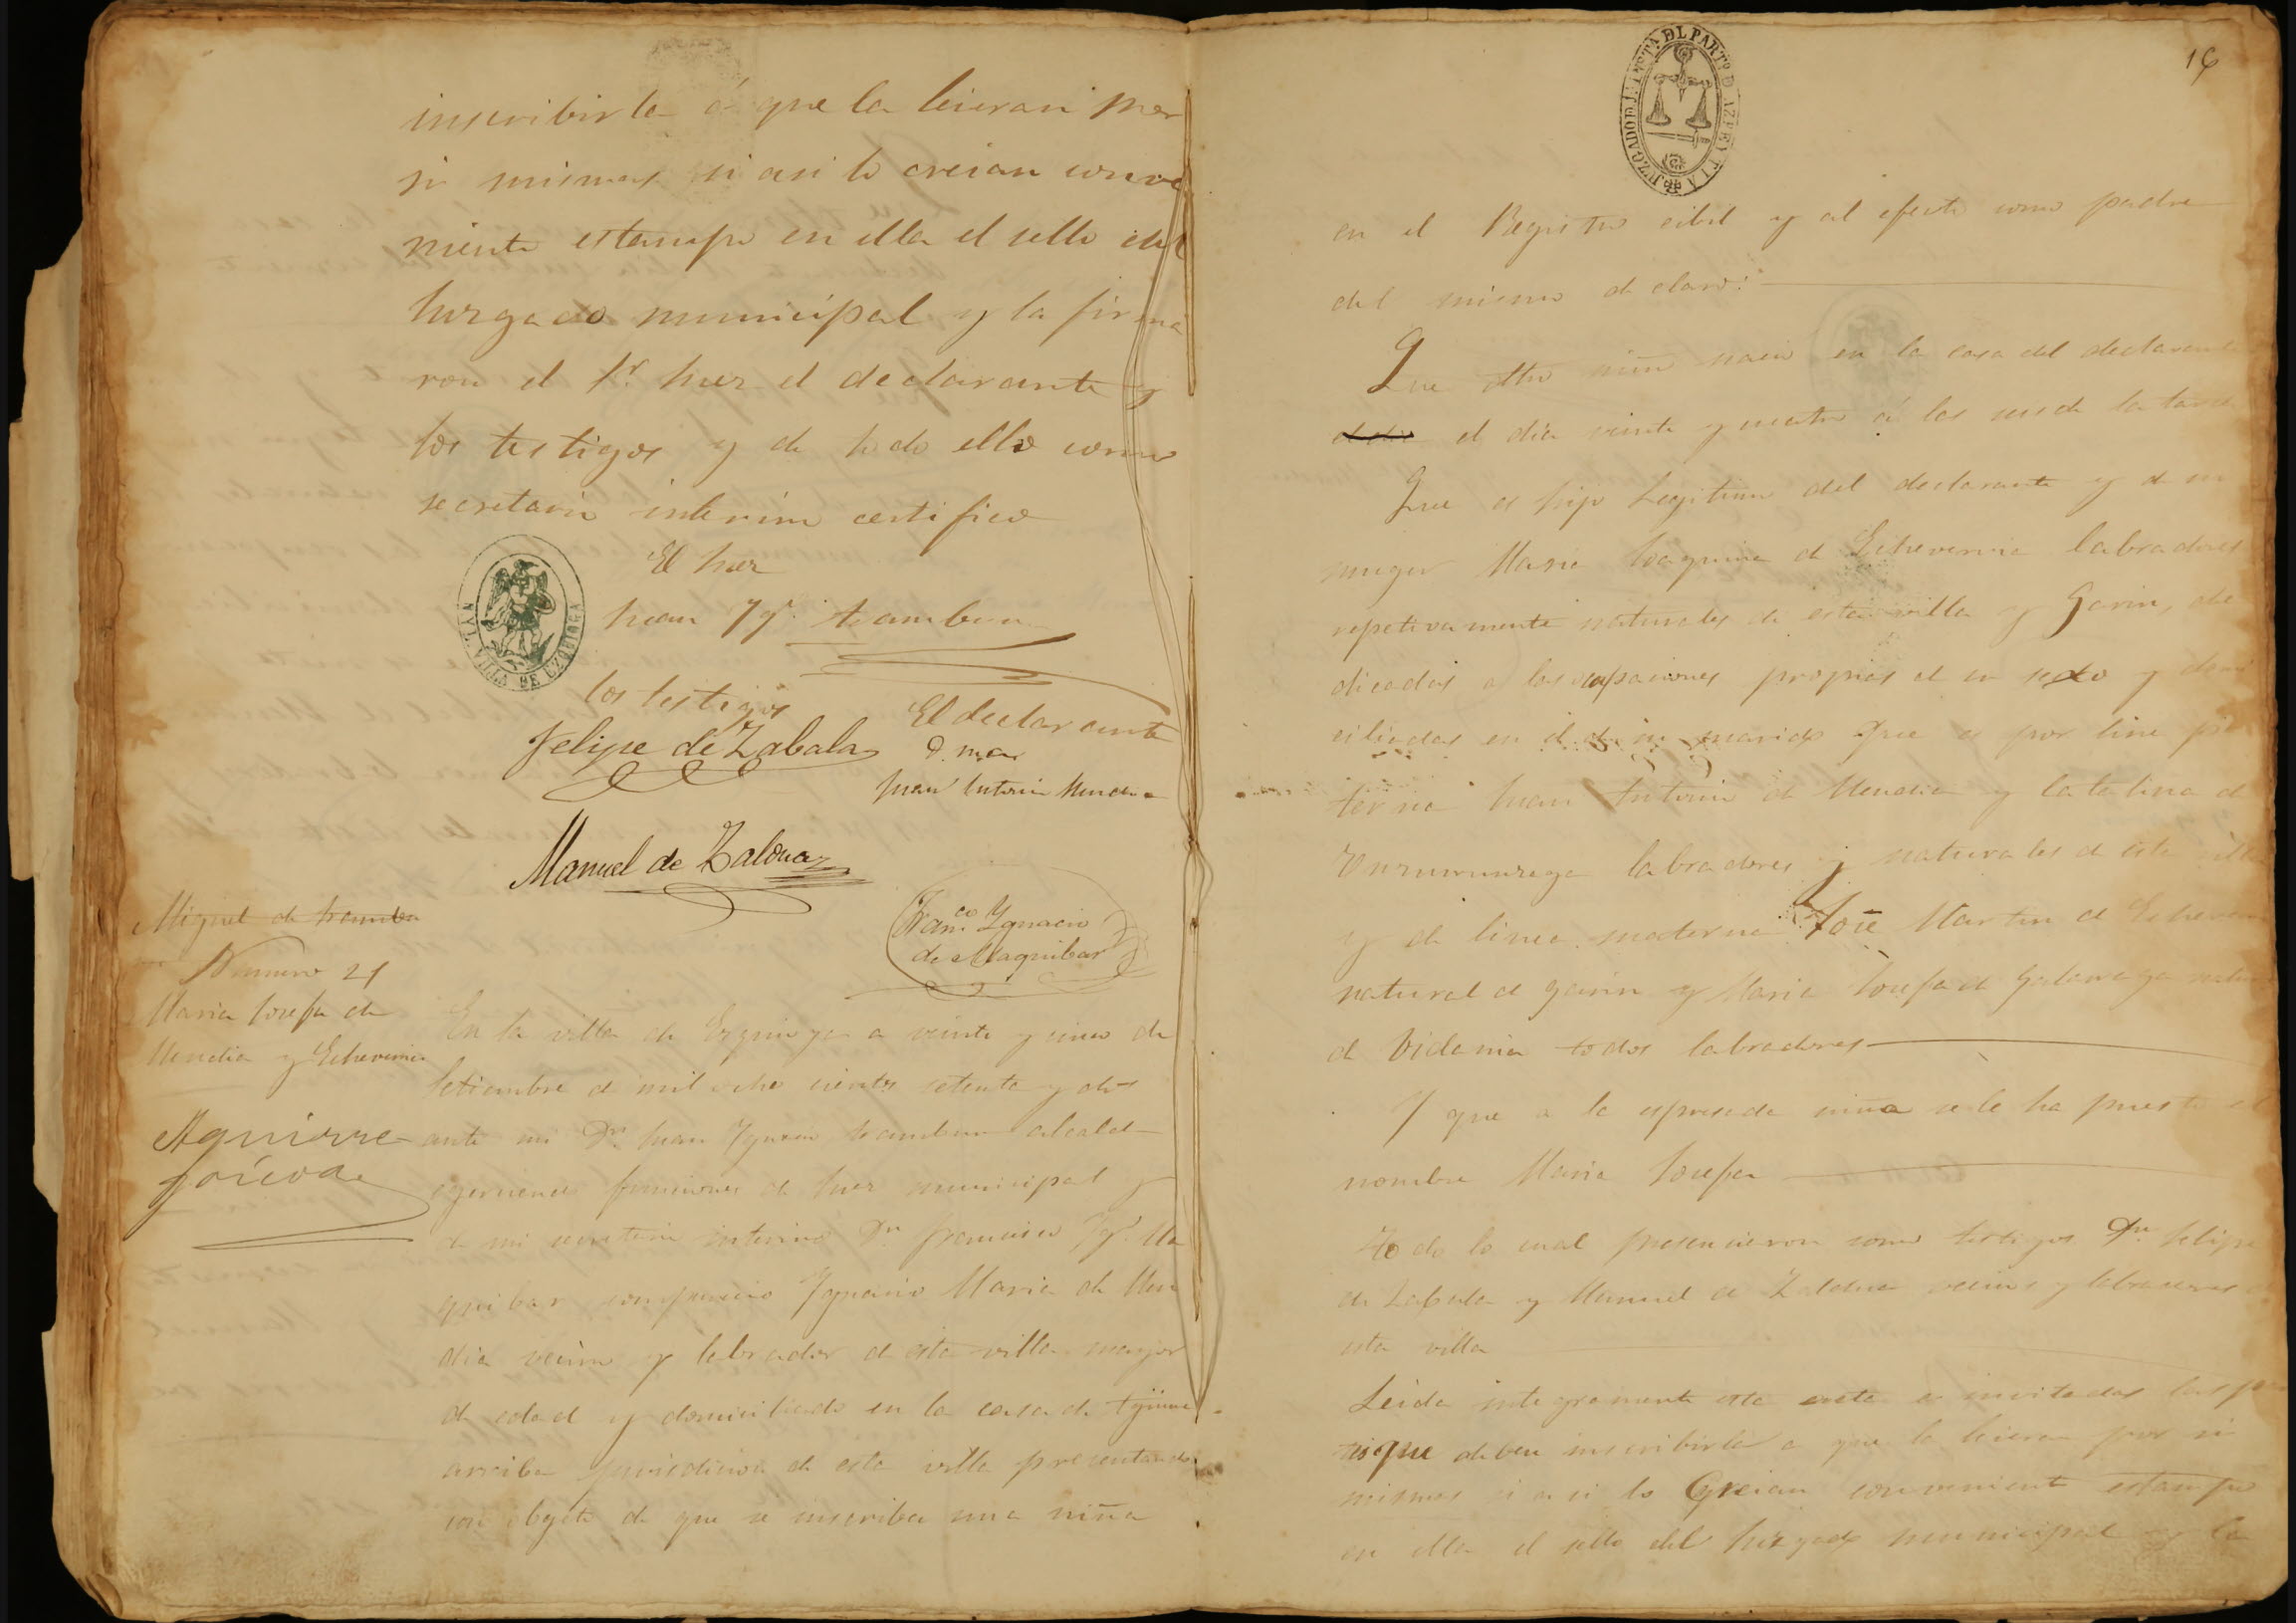 inscribirla á que la leieran por
si mismas si asi lo creian conve
niente estampo en ella el sello del
Juzgado municipal y la firma
ron el Sr. Juez el declarante y
los testigos y de todo ello como
secretario interino certifico
El Juez
Juan Ygº.
ALCALDIA DE LA VILLA DE EZQUIOGA
los testigos
El declarante
Felipe de Zabala
Juan Antonio Mendia
Manuel de Zaldua
Franco. Ygnacio
de Maquibar
Miguel de
Numero 21
Maria Josefa de
Mendia y Echeverria
Aguirre
goicoa
En la villa de Ezquioga a veinte y cinco de
Setiembre de mil ocho cientos setenta y dos
ante mi Dn. Juan Ygnacio alcalde
egerciendo funciones de Juez municipal y
de mi secretario interino Dn. Francisco Ygº. Ma
quibar comparecio Ygnacio Maria de Men
dia vecino y labrador de esta villa mayor
de edad y domiciliado en la casa de
arriba jurisdicion de esta villa presentando
con objeto de que se inscriba una niña
16
JUZGADO DE 1ª INSTA. DL PARTº. D AZPEYTIA
en el Registro cibil y al efecto como padre
del mismo declaro:
Que dho niño nacio en la casa del declarante
el dia veinte y cuatro á las seis de la tarde
Que es hijo Legitimo del declarante y de su
muger Maria Joaquina de Echeverria labradores
repetivamente naturales de esta villa y Gavin, de
dicados a las ocupaciones proprias de su sexo y domi
ciliados en el de su marido Que es por line pa
terna Juan Antonio de Mendia y Catalina de
labradores y naturales de esta villa
y de linea materna José Martin de Echeverria
natural de gavin y Maria Josefa de Galarraga natural
de Vidania todos labradores
Y que a la espresada niña se le ha puesto el
nombre Maria Josefa
Todo lo cual presenciaron como testigos Dn. Felipe
de Zabala y Manuel de Zaldua vecinos y labradores de
esta villa
Leida integramente esta acta e invitadas las per
que deben inscribirla a que la leieran por si
mismas si asi lo Creian conveniente estampo
en ella el sello del Juzgado municipal y la